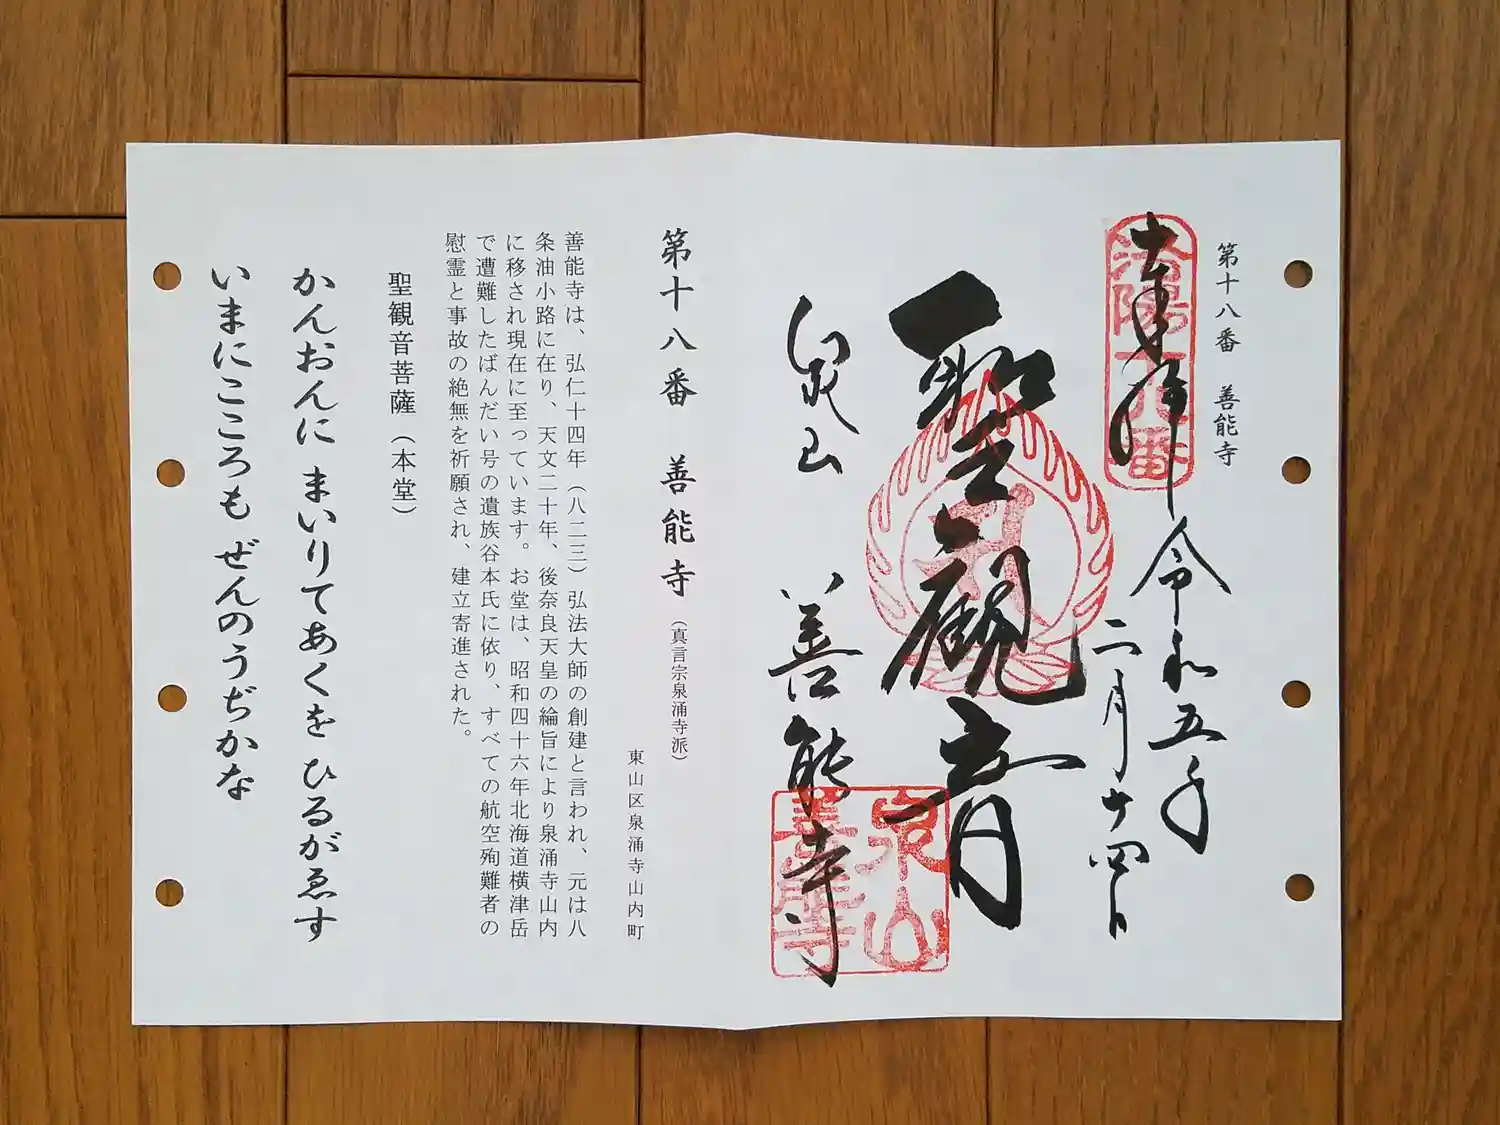 第十八番 善能寺
奉拝
洛陽十八番
令和五年
二月十四日
聖観音
泉山 善能寺
泉山
善能寺
第十八番 善能寺（真言宗泉涌寺派）
東山区泉涌寺山内町
善能寺は、弘仁十四年（八二三）弘法大師の創建と言われ、元は八
条油小路に在り、天文二十年、後奈良天皇の綸旨により泉涌寺山内
に移され現在に至っています。お堂は、昭和四十六年北海道横津岳
で遭難したばんだい号の遺族谷本氏に依り、すべての航空殉難者の
慰霊と事故の絶無を祈願され、建立寄進された。
聖観音菩薩（本堂）
かんおんに まいりてあくを ひるがゑす
いまにこころも ぜんのうぢかな